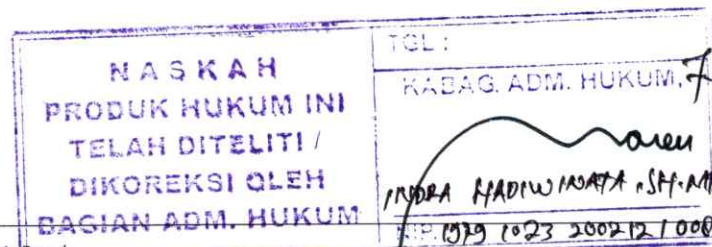 NASKAH
PRODUK HUKUM INI
TELAH DITELITI /
DIKOREKSI OLEH
BAGIAN ADM. HUKUM
TGL :
KABAG. ADM. HUKUM,
INDRA HADIWINATA .SH.M
NIP. 1979 1023 200212 1 008